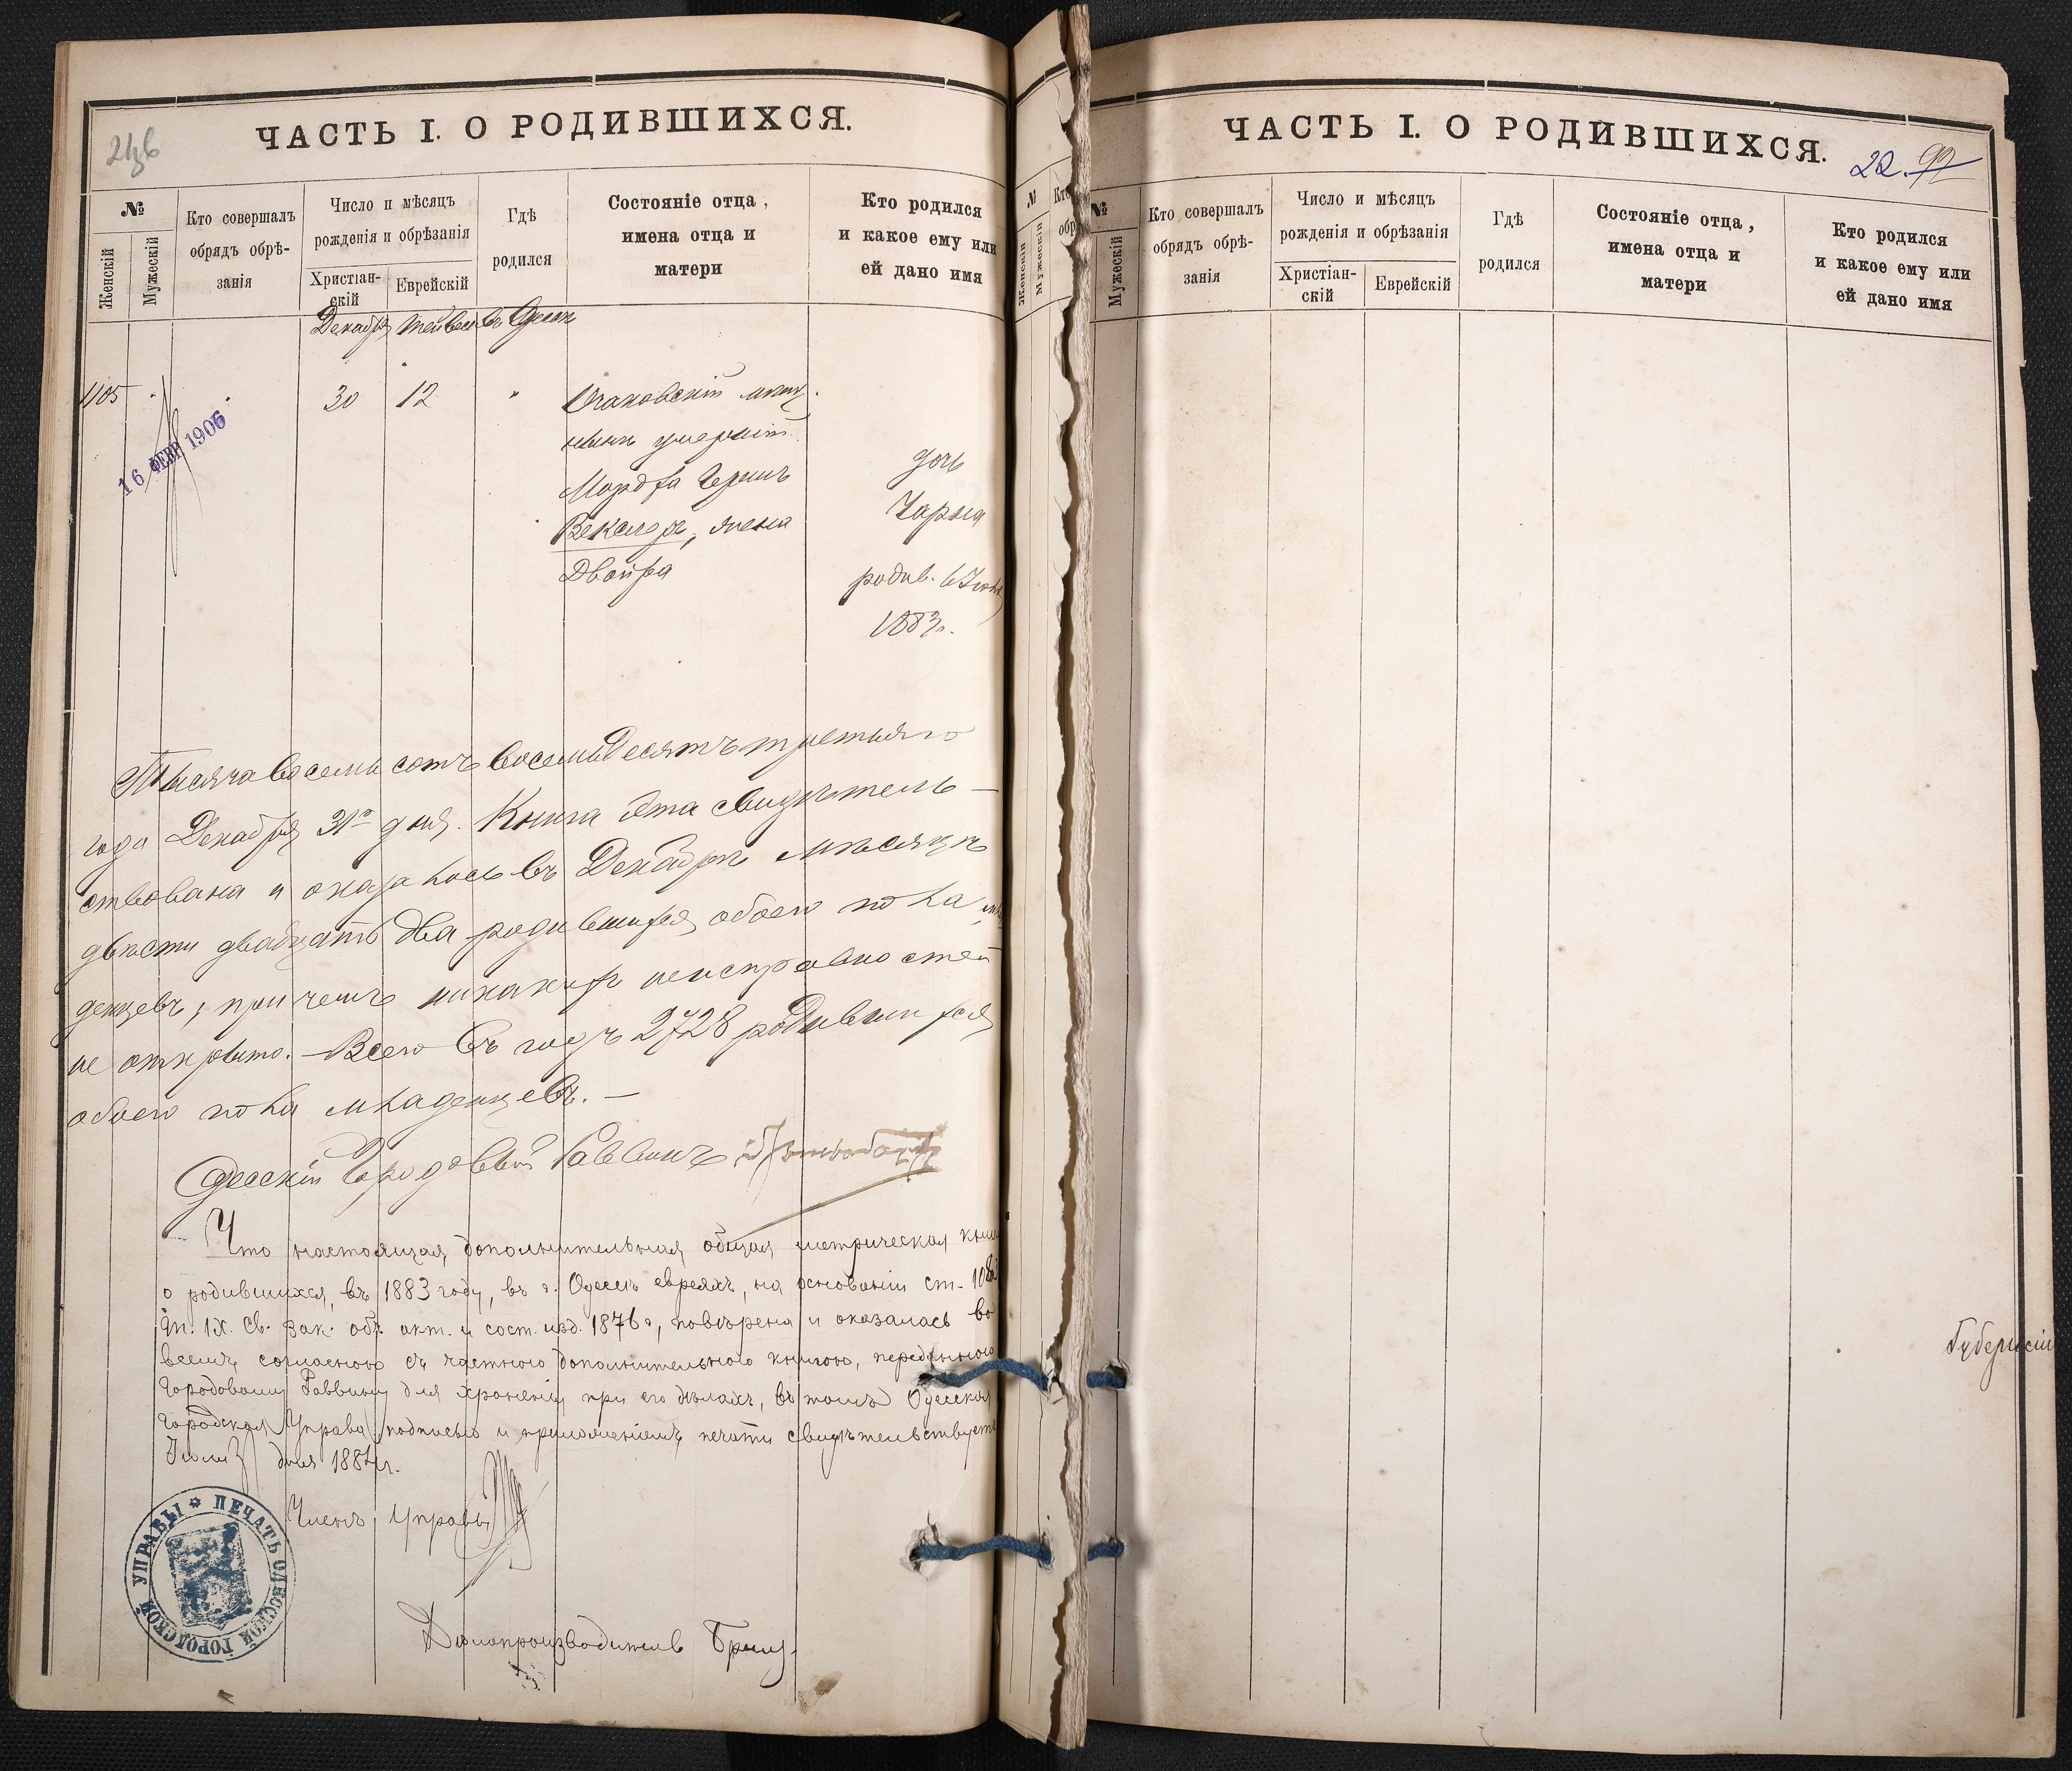 ЧАСТЬ I. О РОДИВШИХСЯ.
№
Женскій
Мужескій
Кто совершалъ
обрядъ обрѣ-
занія
Число и мѣсяцъ
рожденія и обрѣзанія
Христіан-
скій
Еврейскій
Гдѣ
родился
Состояніе отца,
имена отца и
матери
Кто родился
и какое ему или
ей дано имя
Декабря Тейвесъ въ Одессѣ
30 12 " Очаковскій мѣщ
16 ФЕВР 1906
дочь
Векслеръ, жена
Чарна
Двойра
родив.
1883г.
Тысяча восемьсотъ восемьдесятъ третьяго
года Декабря 31го дня. Книга эта свидѣтель-
ствована и оказалось въ Декабрѣ мѣсяцѣ
двѣсти двадцать два родившихся обоего пола
денцевъ, при чемъ никакихъ неисправностей
не открыто. - Всего въ годъ 2728 родившихся
обоего пола младенцевъ. -
Одесскій Городовой Раввинъ
Что настоящая дополнительная общая метрическая
о родившихся, въ 1883 году, въ г. Одессѣ евреяхъ, на основаніи ст.
IX. Св. Зак. об. акт. и сост. изд. 1876 г., повѣрена и оказалась во
всемъ согласною съ частною дополнительною книгою, переданною
Городовому Раввину для храненія при его дѣлахъ, въ томъ Одесская
Городская Управа подписью и приложеніемъ печати свидѣтельствуетъ
Іюля дня 1884 г.
Членъ Управы
ПЕЧАТЬ ОДЕССКОЙ ГОРОДСКОЙ УПРАВЫ
Дѣлопроизводитель
№
Женскій
Мужескій
ЧАСТЬ I. О РОДИВШИХСЯ.
22.
№
Мужескій
Кто совершалъ
обрядъ обрѣ-
занія
Число и мѣсяцъ
рожденія и обрѣзанія
Христіан-
скій
Еврейскій
Гдѣ
родился
Состояніе отца,
имена отца и
матери
Кто родился
и какое ему или
ей дано имя